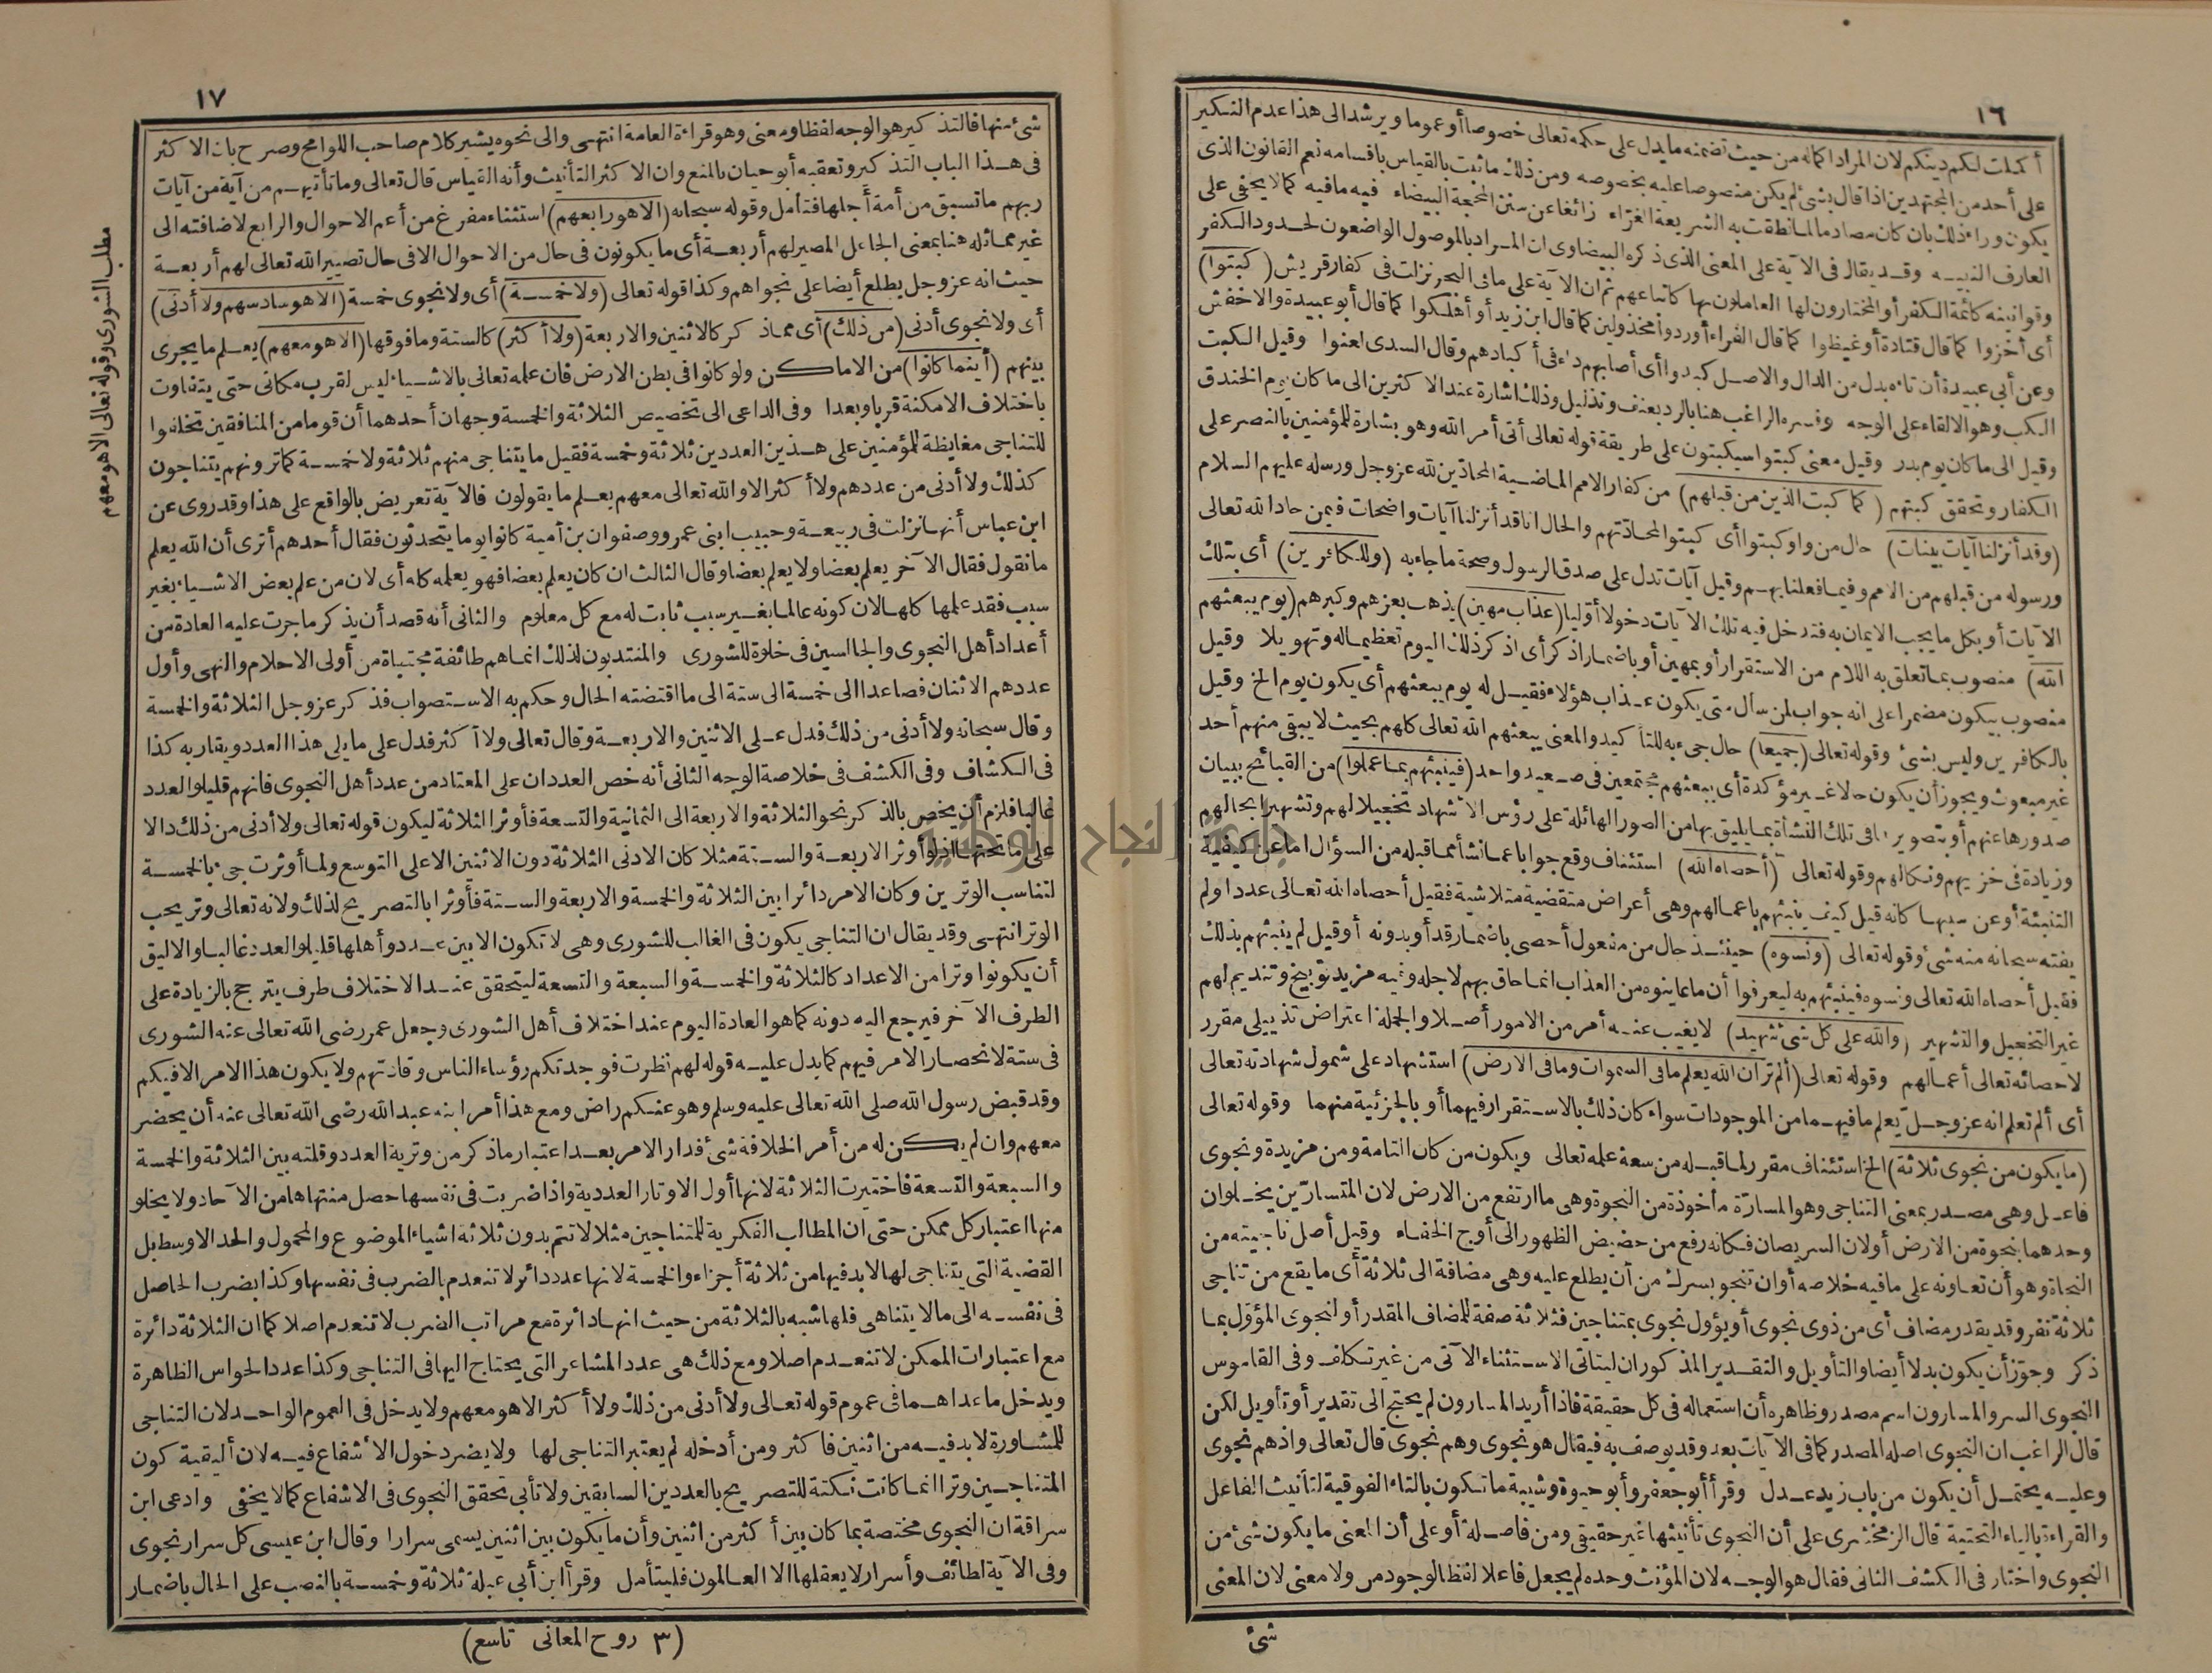 ١٦
أكملت لكم دينكم لان المراد اكماله من حيث تضمنه ما يدل على حكمه تعالى خصوصا أو عموما ويرشد الى هذا عدم النكير
على أحد من المجتهدين اذا قال بشئ لم يكن منصوصا عليه بخصوصه ومن ذلك ما ثبت بالقياس باقسامه نعم القانون الذى
يكون وراء ذلك بان كان مصادما لما نطقت به الشريعة الغراء زائغا عن سنن المحجة البيضاء فيه ما فيه كما لا يخفى على
العارف النبيه وقد يقال فى الآية على المعنى الذى ذكره البيضاوى ان المراد بالموصول الواضعون لحدود الكفر
وقوانينه كائمة الكفر أو المختارون لها العاملون بها كاتباعهم ثم ان الآية على ما فى البحر نزلت فى كفار قريش (كبتوا)
أى أخزوا كما قال قتادة أو غيظوا كما قال الفراء أو ردوا مخذولين كما قال ابن زيد أو أهلكوا كما قال أبو عبيدة والاخفش
وعن أبى عبيدة أن تاءه بدل من الدال والاصل كبدوا أى أصابهم داء فى أكبادهم وقال السدى لعنوا وقيل الكبت
الكب وهو الالقاء على الوجه وفسره الراغب هنا بالرد بعنف وتذليل وذلك اشارة عند الاكثرين الى ما كان يوم الخندق
وقيل الى ما كان يوم بدر وقيل معنى كبتوا سيكبتون على طريقة قوله تعالى أتى أمر الله وهو بشارة للمؤمنين بالنصر على
الكفار وتحقق كبتهم (كما كبت الذين من قبلهم) من كفار الامم الماضية المحادّين لله عز وجل ورسله عليهم السلام
(وقد أنزلنا آيات بينات) حال من واو كبتوا أى كبتوا لمحادّتهم والحال انا قد أنزلنا آيات واضحات فيمن حاد الله تعالى
ورسوله من قبلهم من الامم وفيما فعلنا بهم وقيل آيات تدل على صدق الرسول وصحة ما جاء به (وللكافرين) أى بتلك
الآيات أو بكل ما يجب الايمان به فتدخل فيه تلك الآيات دخولا أوليا (عذاب مهين) يذهب بعزهم وكبرهم (يوم يبعثهم
الله) منصوب بما تعلق به اللام من الاستقرار أو بمهين أو باضمار اذكر أى اذكر ذلك اليوم تعظيما له وتهويلا وقيل
منصوب بيكون مضمرا على انه جواب لمن سأل متى يكون عذاب هؤلاء فقيل له يوم يبعثهم أى يكون يوم الخ وقيل
بالكافرين وليس بشئ وقوله تعالى (جميعا) حال جىء به للتأكيد والمعنى يبعثهم الله تعالى كلهم بحيث لا يبقى منهم أحد
غير مبعوث ويجوز أن يكون حالا غير مؤكدة أى يبعثهم مجتمعين فى صعيد واحد (فينبئهم بما عملوا) من القبائح ببيان
صدورها عنهم أو بتصويرها فى تلك النشأة بما يليق بها من الصور الهائلة على رؤس الاشهاد تخجيلا لهم وتشهيرا بحالهم
وزيادة فى خزيهم ونكالهم وقوله تعالى (أحصاه الله) استئناف وقع جوابا عما نشأ مما قبله من السؤال اما عن كيفية
التنبئة أو عن سببها كانه قيل كيف ينبئهم باعمالهم وهى أعراض متقضية متلاشية فقيل أحصاه الله تعالى عددا ولم
يفته سبحانه منه شئ وقوله تعالى (ونسوه) حينئذ حال من مفعول أحصى باضمار قد أو بدونه أو قيل لم ينبئهم بذلك
فقيل أحصاه الله تعالى ونسوه فينبئهم به ليعرفوا أن ما عاينوه من العذاب انما حاق بهم لاجله وفيه مزيد توبيخ وتنديم لهم
غير التخجيل والتشهير (والله على كل شئ شهيد) لا يغيب عنه أمر من الامور أصلا والجملة اعتراض تذييلى مقرر
لاحصائه تعالى أعمالهم وقوله تعالى (ألم تر أن الله يعلم ما فى السموات وما فى الارض) استشهاد على شمول شهادته تعالى
أى ألم تعلم انه عز وجل يعلم ما فيهما من الموجودات سواء كان ذلك بالاستقرار فيهما أو بالجزئية منهما وقوله تعالى
(ما يكون من نجوى ثلاثة) الخ استئناف مقرر لما قبله من سعة علمه تعالى ويكون من كان التامة ومن مزيدة ونجوى
فاعل وهى مصدر بمعنى التناجى وهو المسارّة مأخوذة من النجوة وهى ما ارتفع من الارض لان المتسارّين يخلوان
وحدهما بنجوة من الارض أو لان السر يصان فكانه رفع من حضيض الظهور الى أوج الخفاء وقيل أصل ناجيته من
النجاة وهو أن تعاونه على ما فيه خلاصه أو ان تنجو بسرك من أن يطلع عليه وهى مضافة الى ثلاثة أى ما يقع من تناجى
ثلاثة نفر وقد يقدر مضاف أى من ذوى نجوى أو يؤول نجوى بمتناجين فثلاثة صفة للمضاف المقدر أو لنجوى المؤول بما
ذكر وجوّز أن يكون بدلا أيضا والتأويل والتقدير المذكوران ليتاتى الاستثناء الآتى من غير تكلف وفى القاموس
النجوى السر والمسارون اسم مصدر وظاهره أن استعماله فى كل حقيقة فاذا أريد المسارون لم يحتج الى تقدير أو تأويل لكن
قال الراغب ان النجوى اصله المصدر كما فى الآيات بعد وقد يوصف به فيقال هو نجوى وهم نجوى قال تعالى واذ هم نجوى
وعليه يحتمل أن يكون من باب زيد عدل وقرأ أبو جعفر وأبو حيوة وشيبة ما تكون بالتاء الفوقية لتأنيث الفاعل
والقراءة بالياء التحتية قال الزمخشرى على أن النجوى تأنيثها غير حقيقى ومن فاصلة أو على أن المعنى ما يكون شئ من
النجوى واختار فى الكشف الثانى فقال هو الوجه لان المؤنث وحده لم يجعل فاعلا لفظا لوجود من ولا معنى لان المعنى
شئ
١٧
شئ منها فالتذكير هو الوجه لفظا ومعنى وهو قراءة العامة انتهى والى نحوه يشير كلام صاحب اللوامح وصرح بان الاكثر
فى هذا الباب التذكير وتعقبه أبو حيان بالمنع وان الاكثر التأنيث وأنه القياس قال تعالى وما تأتيهم من آية من آيات
ربهم ما تسبق من أمة أجلها فتأمل وقوله سبحانه (الا هو رابعهم) استثناء مفرغ من أعم الاحوال والرابع لاضافته الى
غير مماثله هنا بمعنى الجاعل المصير لهم أربعة أى ما يكونون فى حال من الاحوال الا فى حال تصيير الله تعالى لهم أربعة
حيث انه عز وجل يطلع أيضا على نجواهم وكذا قوله تعالى (ولا خمسة) أى ولا نجوى خمسة (الا هو سادسهم ولا أدنى)
أى ولا نجوى أدنى (من ذلك) أى مما ذكر كالاثنين والاربعة (ولا أكثر) كالستة وما فوقها (الا هو معهم) يعلم ما يجرى
بينهم (أينما كانوا) من الاماكن ولو كانوا فى بطن الارض فان علمه تعالى بالاشياء ليس لقرب مكانى حتى يتفاوت
باختلاف الامكنة قربا وبعدا وفى الداعى الى تخصيص الثلاثة والخمسة وجهان أحدهما أن قوما من المنافقين تخلفوا
للتناجى مغايظة للمؤمنين على هذين العددين ثلاثة وخمسة فقيل ما يتناجى منهم ثلاثة ولا خمسة كما ترونهم يتناجون
كذلك ولا أدنى من عددهم ولا أكثر الا والله تعالى معهم يعلم ما يقولون فالآية تعريض بالواقع على هذا وقد روى عن
ابن عباس أنها نزلت فى ربيعة وحبيب ابنى عمرو وصفوان بن أمية كانوا يوما يتحدثون فقال أحدهم أترى أن الله يعلم
ما نقول فقال الآخر يعلم بعضا ولا يعلم بعضا وقال الثالث ان كان يعلم بعضا فهو يعلمه كله أى لان من علم بعض الاشياء بغير
سبب فقد علمها كلها لان كونه عالما بغير سبب ثابت له مع كل معلوم والثانى أنه قصد أن يذكر ما جرت عليه العادة من
أعداد أهل النجوى والجالسين فى خلوة للشورى والمنتدبون لذلك انما هم طائفة مجتباة من أولى الاحلام والنهى وأول
عددهم الاثنان فصاعدا الى خمسة الى ستة الى ما اقتضته الحال وحكم به الاستصواب فذكر عز وجل الثلاثة والخمسة
وقال سبحانه ولا أدنى من ذلك فدل على الاثنين والاربعة وقال تعالى ولا أكثر فدل على ما يلى هذا العدد ويقاربه كذا
فى الكشاف وفى الكشف فى خلاصة الوجه الثانى أنه خص العددان على المعتاد من عدد أهل النجوى فانهم قليلو العدد
غالبا فلزم أن يخص بالذكر نحو الثلاثة والاربعة الى الثمانية والتسعة فأوثر الثلاثة ليكون قوله تعالى ولا أدنى من ذلك دالا
على ما تحتها اذ لو أوثر الاربعة والستة مثلا كان الادنى الثلاثة دون الاثنين الا على التوسع ولما أوثرت جىء بالخمسة
لتناسب الوترين وكان الامر دائرا بين الثلاثة والخمسة والاربعة والستة فأوثرا بالتصريح لذلك ولانه تعالى وتر يحب
الوتر انتهى وقد يقال ان التناجى يكون فى الغالب للشورى وهى لا تكون الا بين عدد وأهلها قليلو العدد غالبا والاليق
أن يكونوا وترا من الاعداد كالثلاثة والخمسة والسبعة والتسعة ليتحقق عند الاختلاف طرف يترجح بالزيادة على
الطرف الآخر فيرجع اليه دونه كما هو العادة اليوم عند اختلاف أهل الشورى وجعل عمر رضى الله تعالى عنه الشورى
فى ستة لانحصار الامر فيهم كما يدل عليه قوله لهم نظرت فوجدتكم رؤساء الناس وقادتهم ولا يكون هذا الامر الا فيكم
وقد قبض رسول الله صلى الله تعالى عليه وسلم وهو عنكم راض ومع هذا أمر ابنه عبد الله رضى الله تعالى عنه أن يحضر
معهم وان لم يكن له من أمر الخلافة شئ فدار الامر بعد اعتبار ما ذكر من وترية العدد وقلته بين الثلاثة والخمسة
والسبعة والتسعة فاختيرت الثلاثة لانها أول الاوتار العددية واذا ضربت فى نفسها حصل منتهاها من الآحاد ولا يخلو
منها اعتبار كل ممكن حتى ان المطالب الفكرية للمتناجين مثلا لا تتم بدون ثلاثة اشياء الموضوع والمحمول والحد الاوسط بل
القضية التى يتناجى لها لا بد فيها من ثلاثة أجزاء والخمسة لانها عدد دائر لا تنعدم بالضرب فى نفسها وكذا بضرب الحاصل
فى نفسه الى ما لا يتناهى فلها شبه بالثلاثة من حيث انها دائرة مع مراتب الضرب لا تنعدم اصلا كما ان الثلاثة دائرة
مع اعتبارات الممكن لا تنعدم اصلا ومع ذلك هى عدد المشاعر التى يحتاج اليها فى التناجى وكذا عدد الحواس الظاهرة
ويدخل ما عداهما فى عموم قوله تعالى ولا أدنى من ذلك ولا أكثر الا هو معهم ولا يدخل فى العموم الواحد لان التناجى
للمشاورة لا بد فيه من اثنين فاكثر ومن أدخله لم يعتبر التناجى لها ولا يضر دخول الاشفاع فيه لان أليقية كون
المتناجين وترا انما كانت نكتة للتصريح بالعددين السابقين ولا تأبى تحقق النجوى فى الاشفاع كما لا يخفى وادعى ابن
سراقة ان النجوى مختصة بما كان بين أكثر من اثنين وأن ما يكون بين اثنين يسمى سرارا وقال ابن عيسى كل سرار نجوى
وفى الآية لطائف وأسرار لا يعقلها الا العالمون فليتأمل وقرأ ابن أبي عبلة ثلاثة وخمسة بالنصب على الحال باضمار
مطلب الشورى وقوله تعالى الا هو معهم
(٣ روح المعانى تاسع)
جامعة النجاح الوطنية